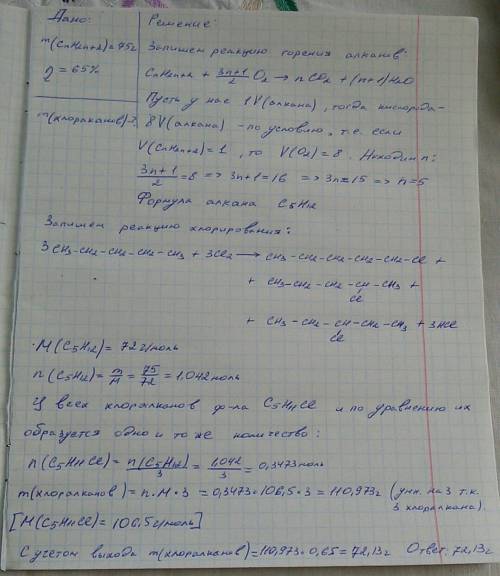 Дано:
m(CnH2n+2)=75г
η=65%
m(хлоралканов)-?
Решение:
Запишем реакцию горения алканов:
CnH2n+2 + 3n+1/2 O2 → nCO2 + (n+1)H2O
Пусть у нас 1V(алкана), тогда кислорода-
8V(алкана) - по условию, т.е. если
V(CnH2n+2)=1, то V(O2)=8. Находим n:
3n+1/2=8 => 3n+1=16 => 3n=15 => n=5
Формула алкана C5H12
Запишем реакцию хлорирования:
3CH3-CH2-CH2-CH2-CH3 + 3Cl2 → CH3-CH2-CH2-CH2-CH2-Cl +
+ CH3-CH2-CH2-CH-CH3 +
Cl
+ CH3-CH2-CH-CH2-CH3 + 3HCl
Cl
M(C5H12)=72г/моль
n(C5H12)= m/M = 75/72 = 1,042моль
У всех хлоралканов ф-ла C5H11Cl и по уравнению их
образуется одно и то же количество:
n(C5H11Cl)= n(C5H12)/3 = 1,042/3 = 0,3473моль
m(хлоралканов)=n·M·3 = 0,3473·106,5·3=110,973г (умн. на 3 т.к.
3 хлоралкана).
[M(C5H11Cl)=106,5г/моль]
С учетом выхода m(хлоралканов)=110,973·0,65=72,13г Ответ: 72,13г